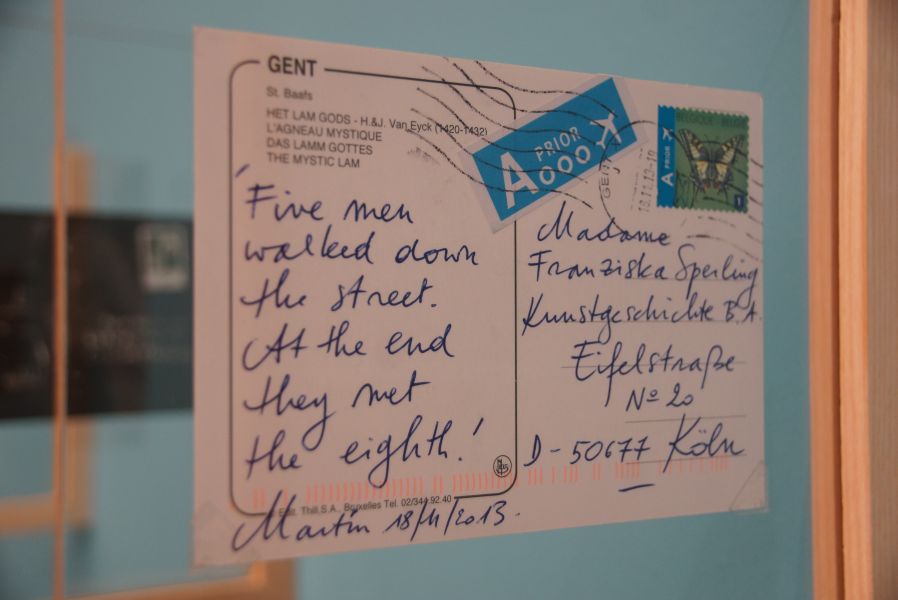 GENT
St. Baafs
HET LAM GODS - H.&J. Van Eyck (1420-1432)
L'AGNEAU MYSTIQUE
DAS LAMM GOTTES
THE MYSTIC LAM
Five men
walked down
the street.
At the end
they met
the eighth!
Edit. Thill.S.A., Bruxelles Tel. 02/344.92.40
Martin 18/11/2013.
A PRIOR
GENT
18.11.13-19
BELGIQUE
A PRIOR
1
Madame
Franziska Sperling
Kunstgeschichte B.A.
Eifelstraße
Nº 20
D - 50677 Köln